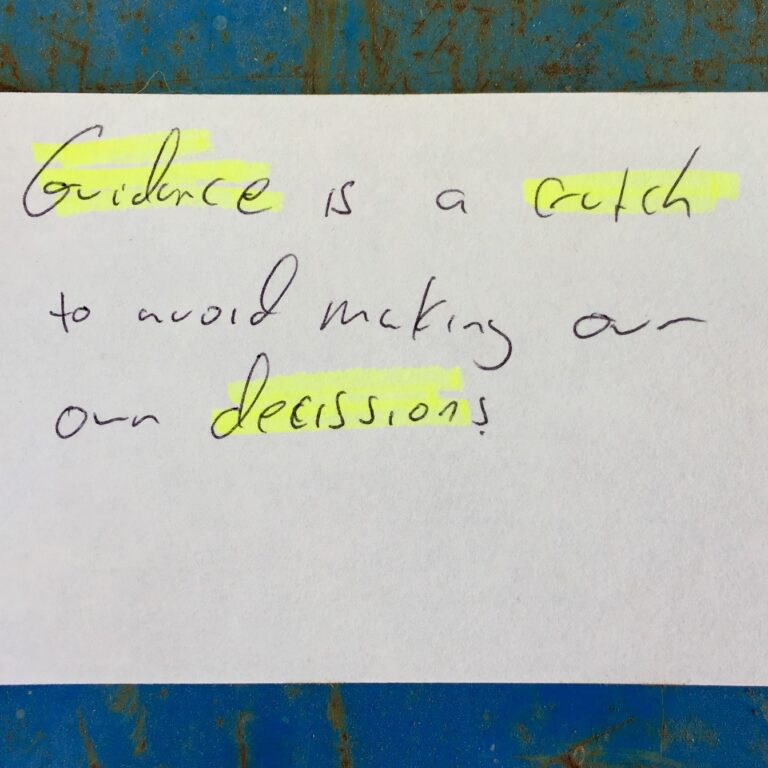 Guidance is a crutch
to avoid making our
own decissions